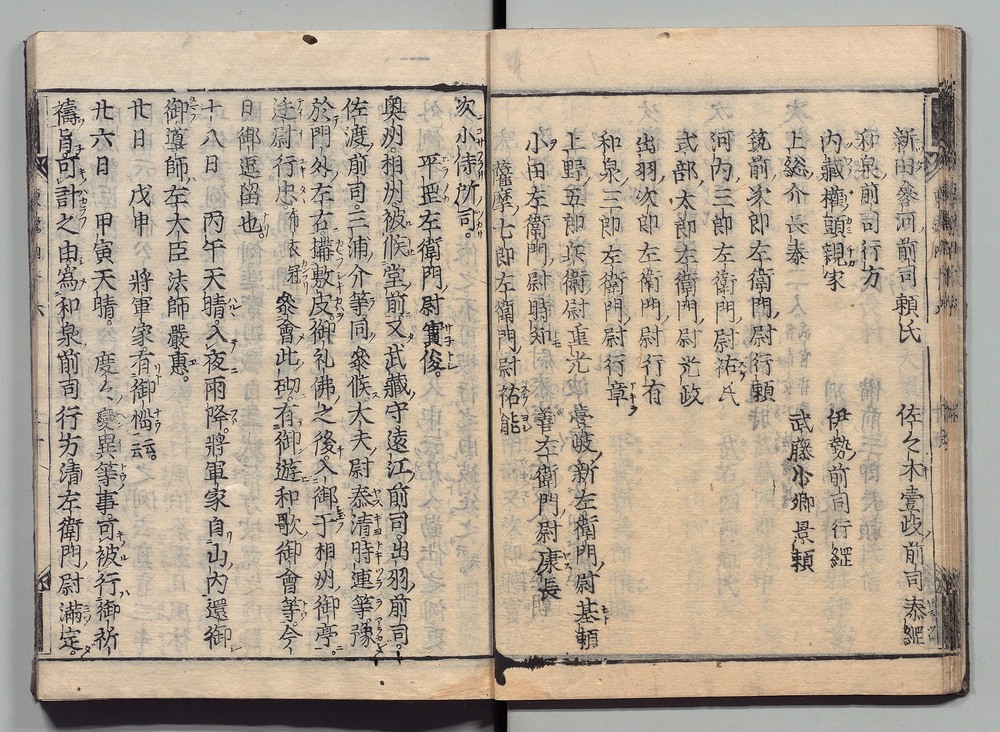 新田參河前司頼氏 佐々木壹岐前司泰綱
和泉前司行方
内藏權頭親家 伊勢前司行經
上総介長泰 武藤少卿景頼
筑前次郎左衛門尉行頼
河内三郎左衛門尉祐氏
式部太郎左衛門尉光政
出羽次郎左衛門尉行有
和泉三郎左衛門尉行章
上野五郎兵衛尉重光 壹岐新左衛門尉基頼
小田左衛門尉時知 善左衛門尉康長
薩摩七郎左衛門尉祐能
次小侍所司。
平罡左衛門尉實俊。
奥州相州被候堂前又武藏守遠江前司。出羽前司。
佐渡前司。三浦介等同參候大夫尉泰清時連等豫
於門外左右構敷皮御礼佛之後入御于相州御亭。
廷尉行忠 參會此砌。有御遊和歌御會等。今
日御逗留也。
十八日 丙午天晴入夜雨降。將軍家自山内還御
御導師左大臣法師嚴惠。
廿日 戊申 將軍家有御惱云云。
廿六日 甲寅天晴。度々變異等事可被行御祈
禱旨可計之由寫和泉前司行方清左衛門尉滿定。